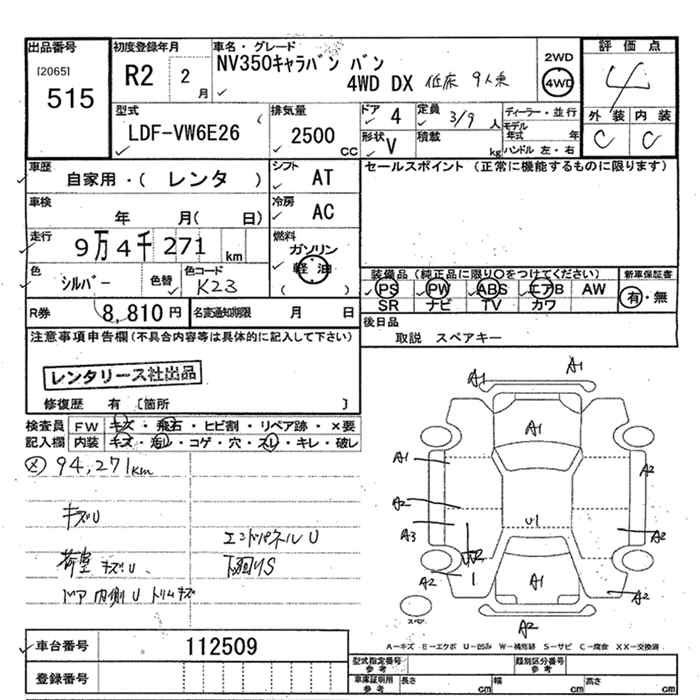 出品番号
[2065]
515
初度登録年月
R2 2 月
車名・グレード
NV350キャラバン バン
4WD DX 低床 9人乗
2WD
4WD
評価点
4
外装 内装
C C
型式
LDF-VW6E26
排気量
2500 CC
ドア 4
形状 V
定員 3/9 人
積載 kg
ディーラー・並行
モデル年式 年
ハンドル 左・右
車歴
自家用・( レンタ )
シフト AT
車検
年 月( 日)
冷房 AC
走行
9万4千271 km
燃料
ガソリン
軽油
( )
色 シルバー
色替
色コード K23
R券 8,810 円
名変通知期限 月 日
セールスポイント (正常に機能するものに限ります)
装備品 (純正品に限り○をつけてください)
新車保証書
PS PW ABS エアB AW
SR ナビ TV カワ
有・無
後日品
取説 スペアキー
注意事項申告欄 (不具合内容等は具体的に記入して下さい)
レンタリース社出品
修復歴 有 [箇所 ]
検査員記入欄
FW キズ・飛石・ヒビ割・リペア跡・×要
内装 キズ・汚レ・コゲ・穴・スレ・キレ・破レ
94,271km
キズU
荷室 キズU
ドア 内側U トリムキズ
エンドパネルU
下廻りS
A1 A1
A1
A1 A2
A2
A3 U1 A2
A2 1 A1 A2
A2
スペア
A－キズ E－エクボ U－凹み W－補修跡 S－サビ C－腐食 XX－交換済
車台番号 112509
登録番号
型式指定番号 参考
類別区分番号 参考
車庫証明用 参考
長さ cm 幅 cm 高さ cm